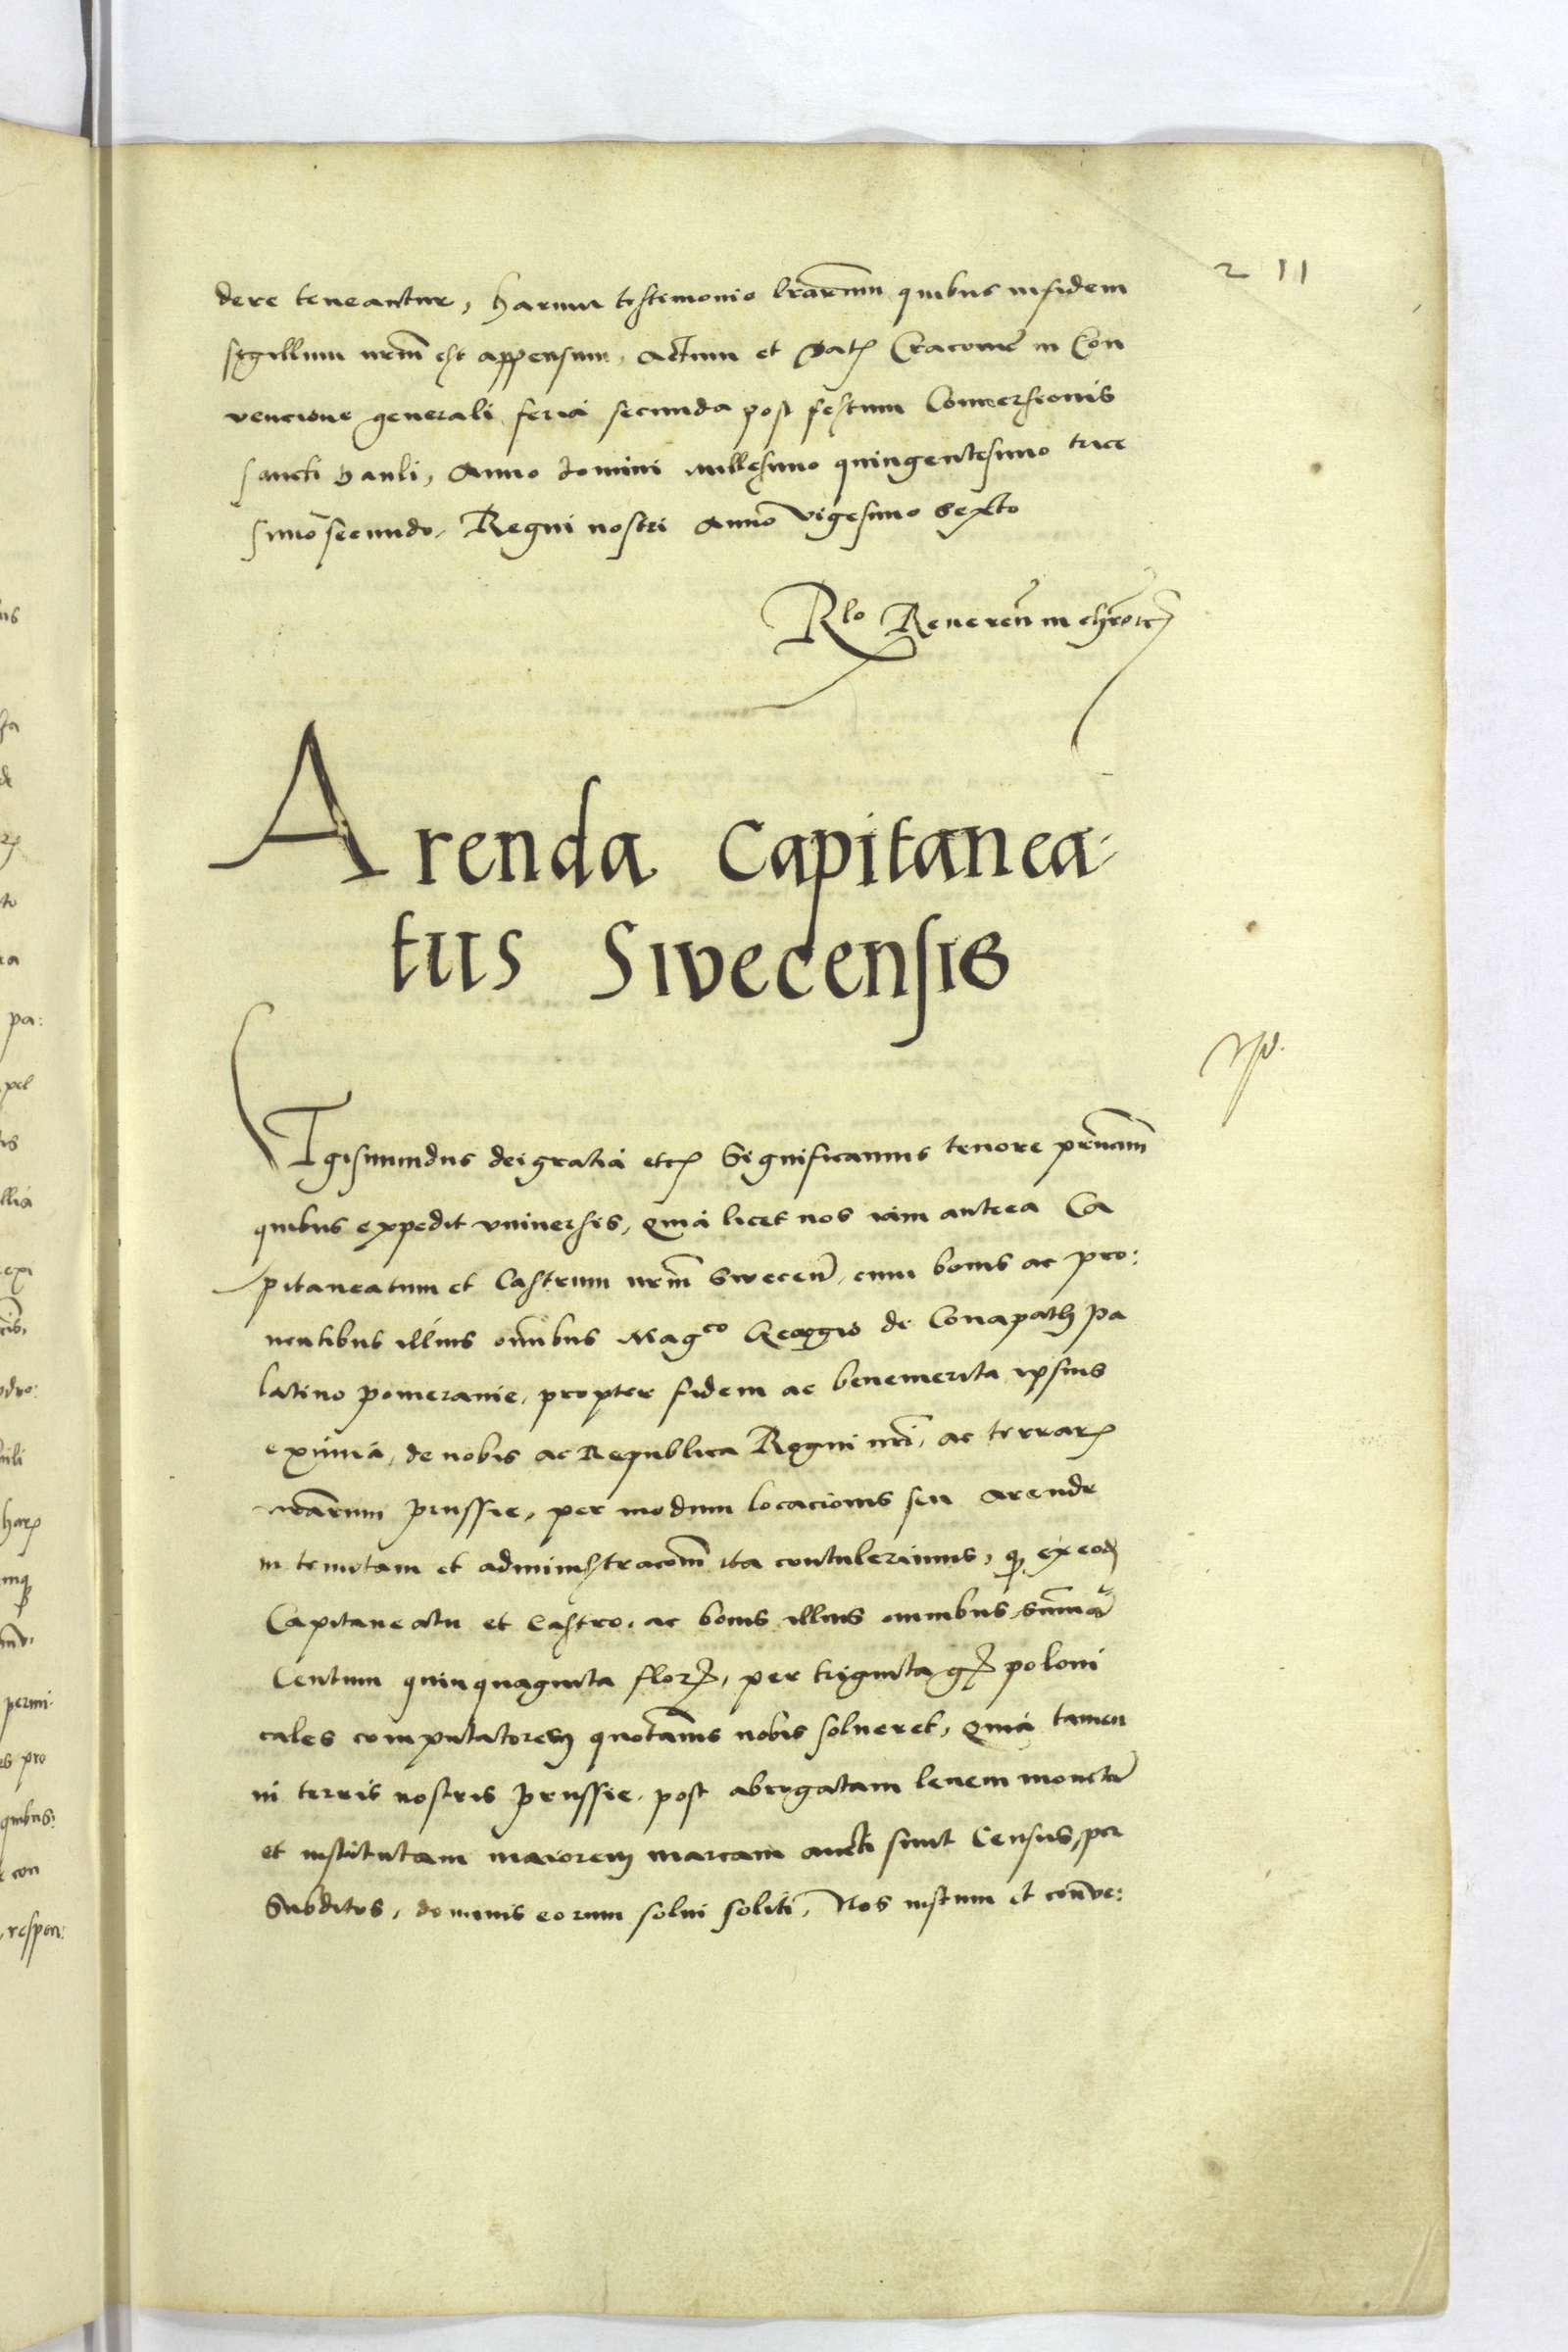 211
dere teneantur, harum testimonio lrarum quibus in fidem
sigillum nrm est appensum. Actum et Dat Cracovie in Con
vencione generali feria secunda post festum Conversionis
sancti Pauli, Anno domini millesimo quingentesimo trice
simo secundo. Regni nostri Anno vigesimo sexto
Rlo Reveren in chro etc
Arenda Capitanea-
tus Swecensis
Sigismundus dei gratia etc Significamus tenore prnam
quibus expedit universis, Quia licet nos iam antea Ca
pitaneatum et Castrum nrm Swecen, cum bonis ac pro:
ventibus illius omibus Magco Georgio de Conapath Pa
latino pomeranie, propter fidem ac benemerita ipsius
eximia, de nobis ac Republica Regni nri, ac terrar
nrarum Prussie, per modum locacionis seu arende
in tenutam et administracom ita contulerimus, q ex eod
Capitaneatu et Castro, ac bonis illius omnibus summa
Centum quinquaginta flor, per triginta g poloni
cales computatorem quotannis nobis solveret, Quia tamen
in terris nostris Prussie, post abrogatam levem moneta
et institutam maiorem marcam aucti sunt Census, per
Subditos, dominis eorum solvi soliti, Nos iustum et conve: